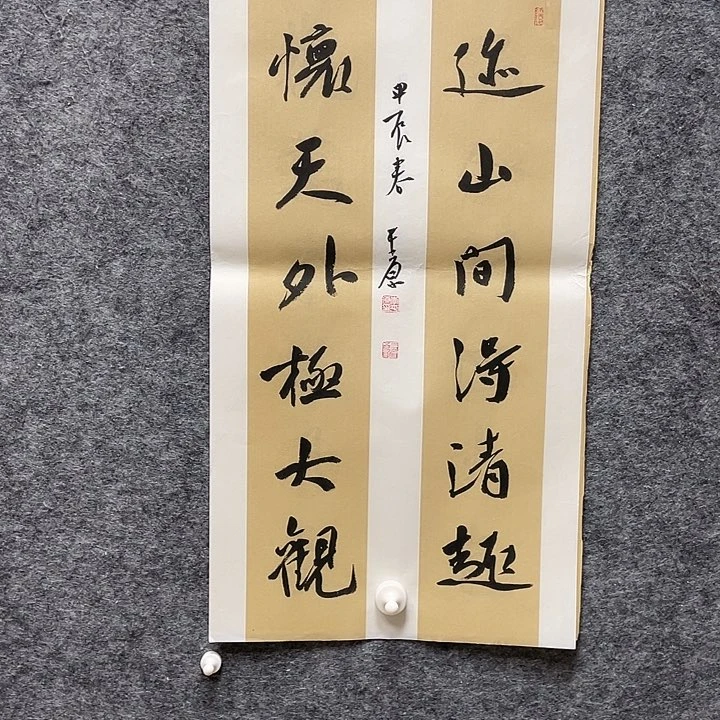 迹山間得清趣
懷天外極大觀
甲辰春